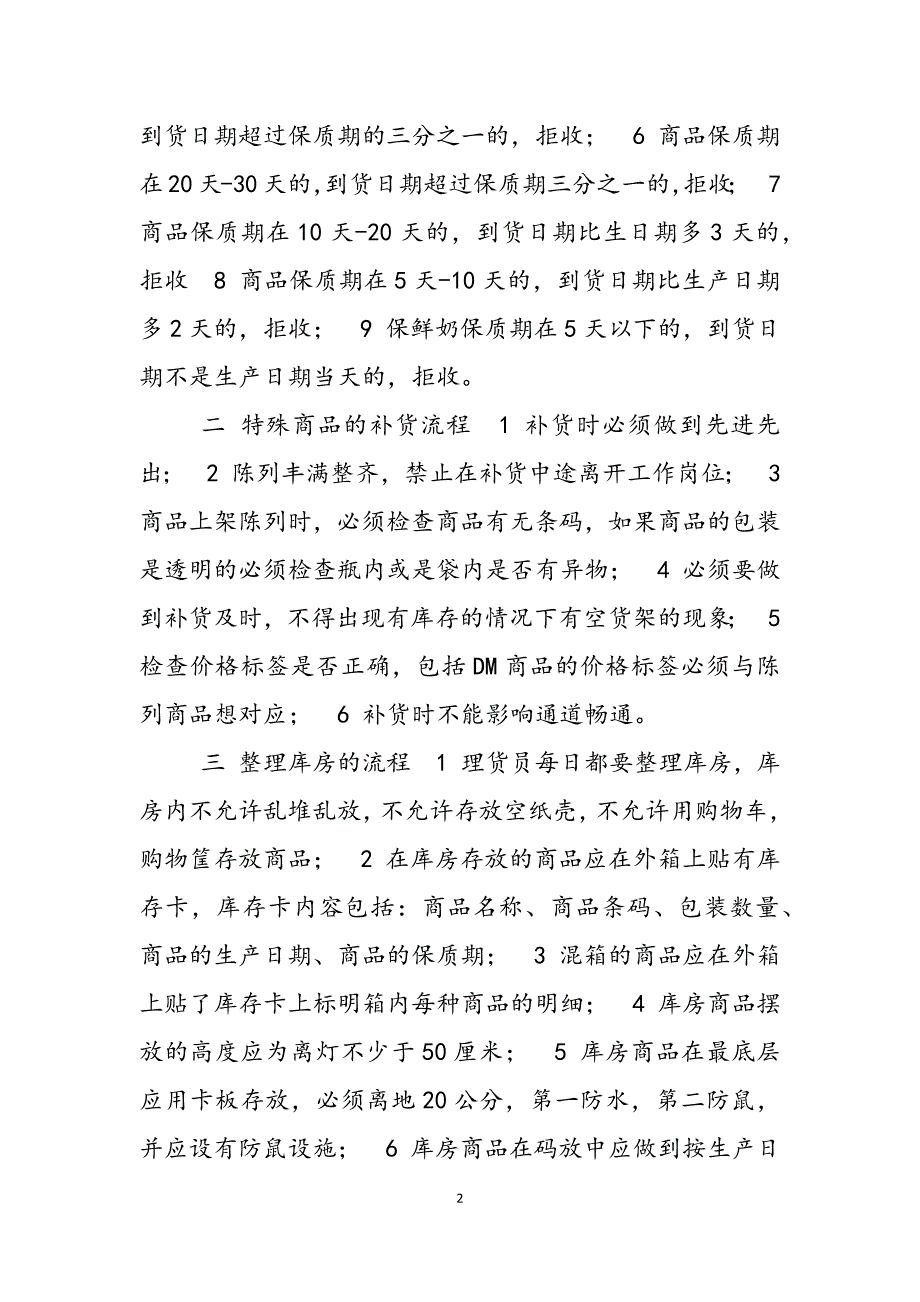 到货日期超过保质期的三分之一的，拒收； 6 商品保质期
在20天-30天的,到货日期超过保质期三分之一的,拒收； 7
商品保质期在10天-20天的，到货日期比生日期多3天的，
拒收 8 商品保质期在5天-10天的，到货日期比生产日期
多2天的，拒收； 9 保鲜奶保质期在5天以下的，到货日
期不是生产日期当天的，拒收。
二 特殊商品的补货流程 1 补货时必须做到先进先
出； 2 陈列丰满整齐，禁止在补货中途离开工作岗位； 3
商品上架陈列时，必须检查商品有无条码，如果商品的包装
是透明的必须检查瓶内或是袋内是否有异物； 4 必须要做
到补货及时，不得出现有库存的情况下有空货架的现象； 5
检查价格标签是否正确，包括DM商品的价格标签必须与陈
列商品想对应； 6 补货时不能影响通道畅通。
三 整理库房的流程 1 理货员每日都要整理库房，库
房内不允许乱堆乱放，不允许存放空纸壳，不允许用购物车，
购物筐存放商品； 2 在库房存放的商品应在外箱上贴有库
存卡，库存卡内容包括：商品名称、商品条码、包装数量、
商品的生产日期、商品的保质期； 3 混箱的商品应在外箱
上贴了库存卡上标明箱内每种商品的明细； 4 库房商品摆
放的高度应为离灯不少于50厘米； 5 库房商品在最底层
应用卡板存放，必须离地20公分，第一防水，第二防鼠，
并应设有防鼠设施； 6 库房商品在码放中应做到按生产日
2